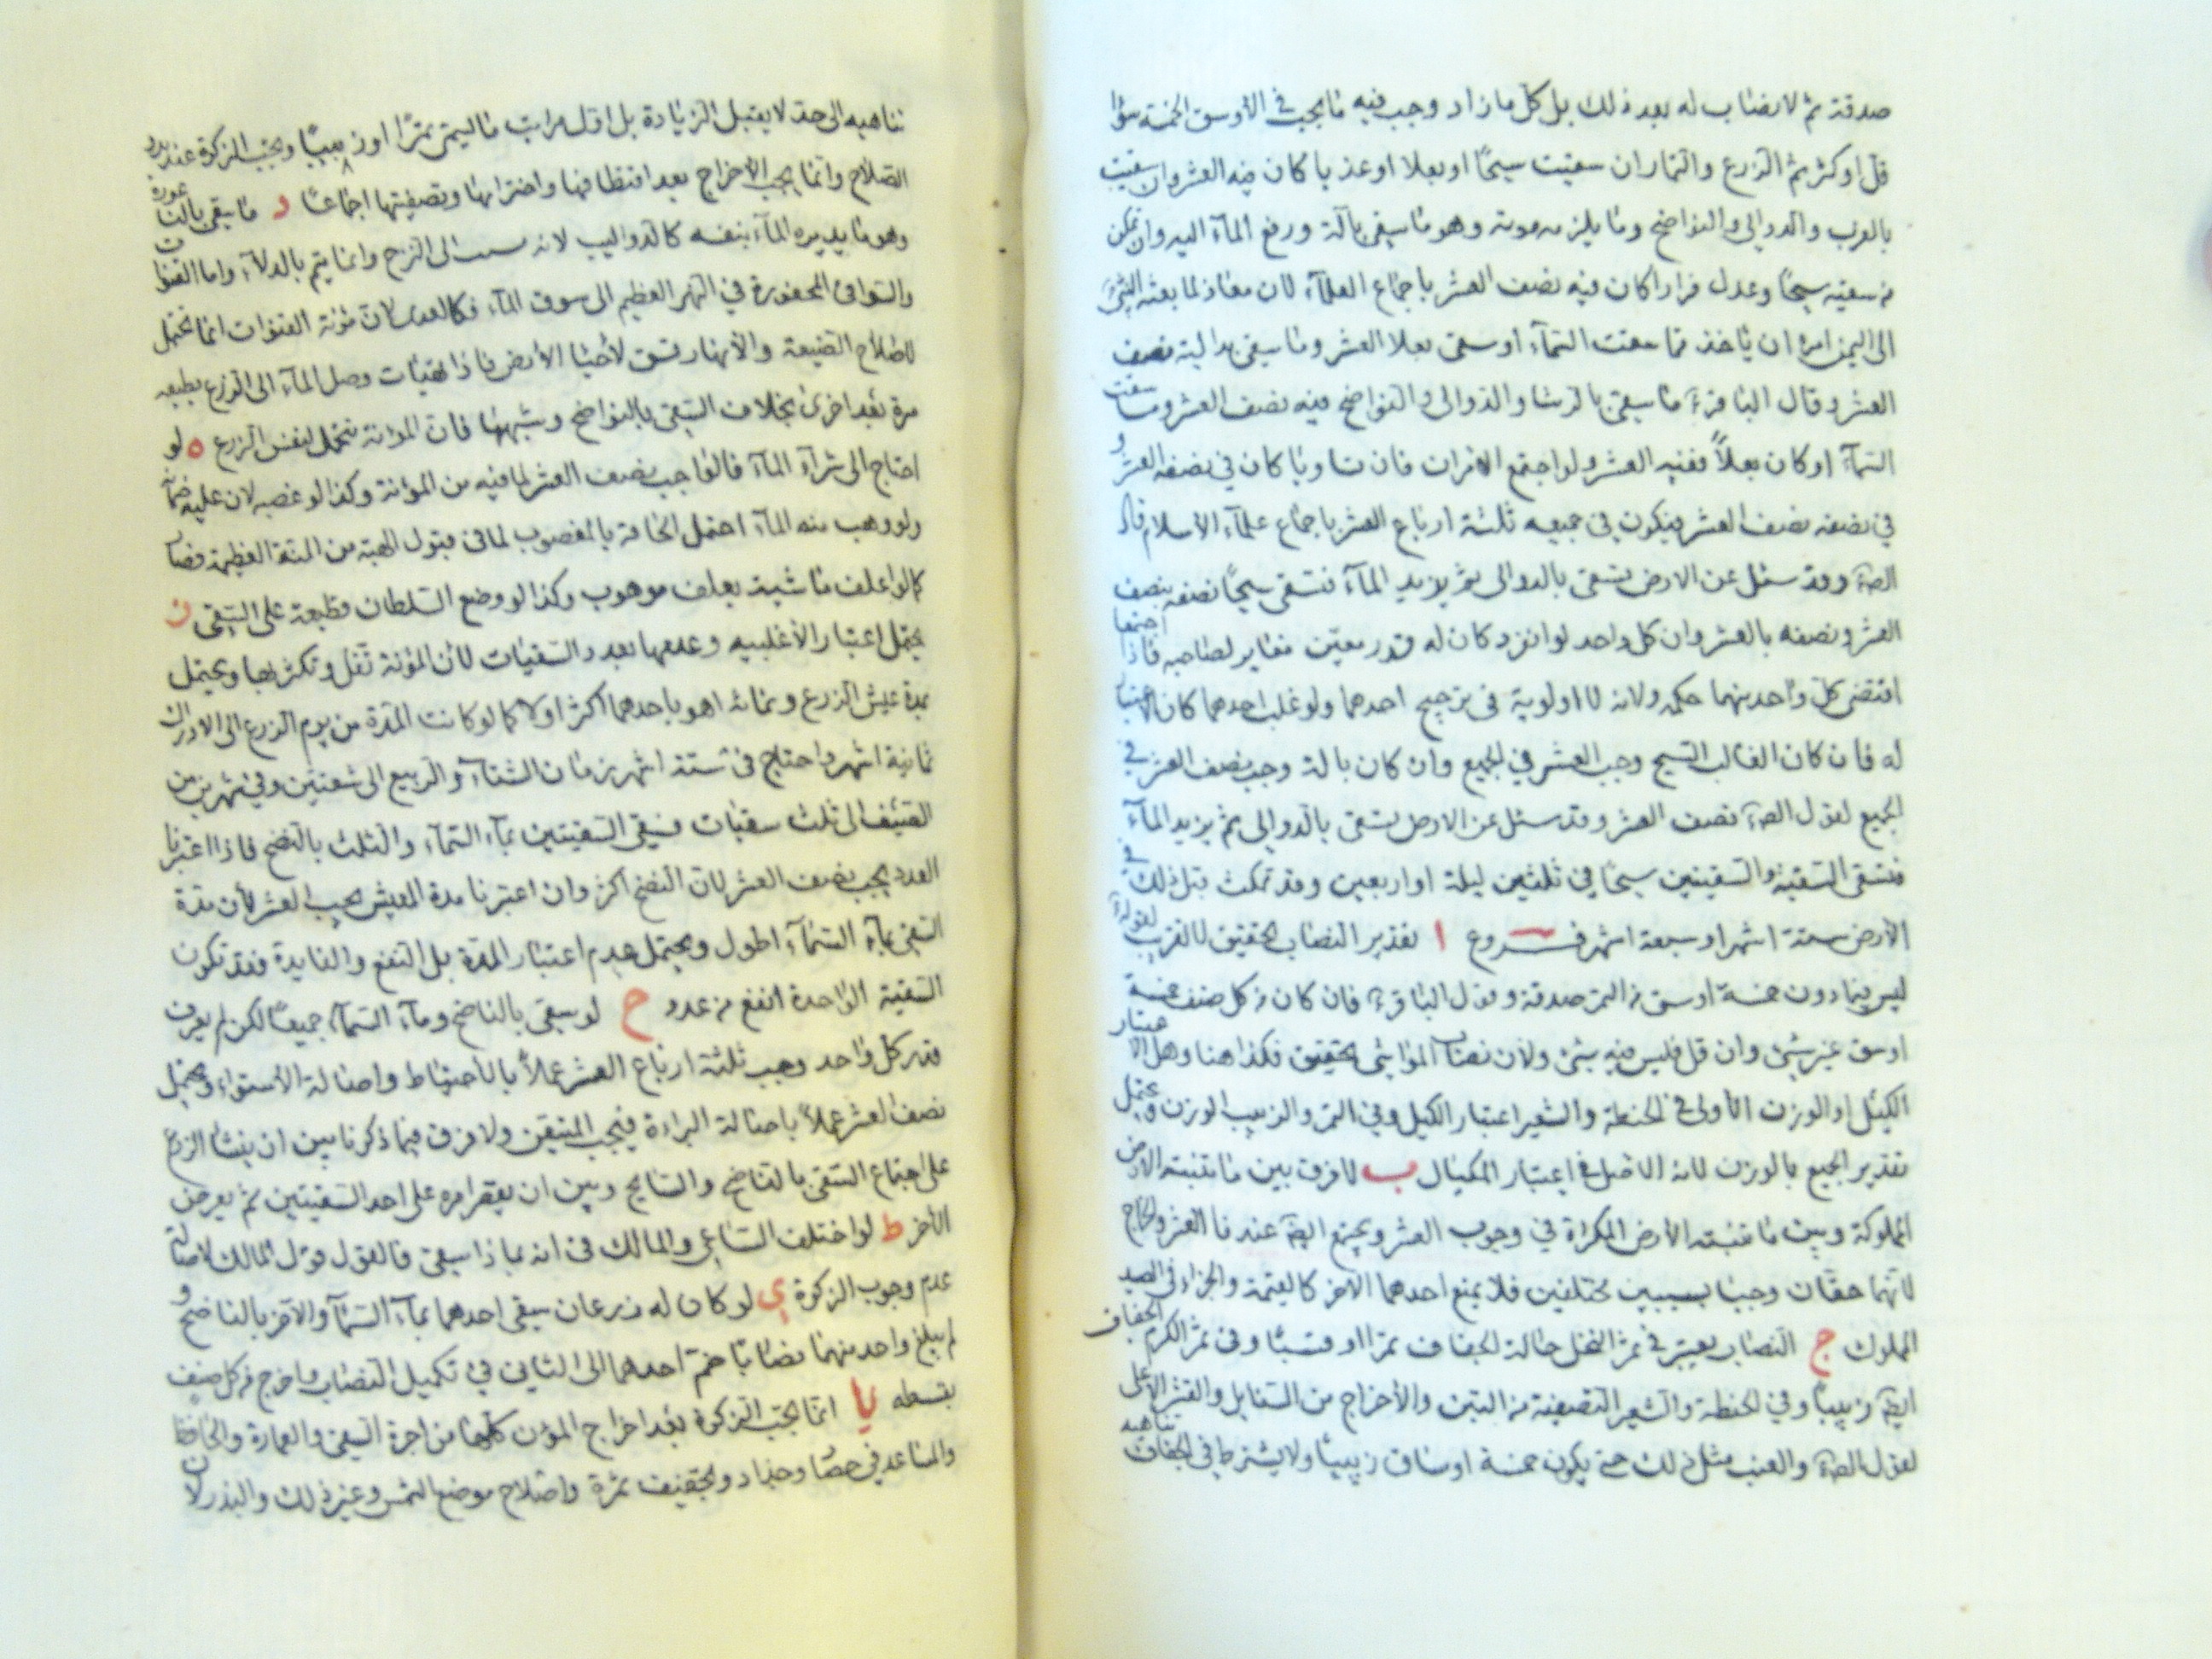 صدقة ثم لا نصاب له بعد ذلك بل كل ما زاد وجب فيه ما يجب في الأوسق الخمسة سواء
قل او كثر ثم الزرع والثمار ان سقيت سيحًا او بعلا او عذيا كان فيه العشر وان سقيت
بالغرب والدوالي والنواضح وما يلزمه مونة وهو ما سقي بآلة ورفع المآء اليه وان
من سقيه سيحًا وعدل كان فيه نصف العشر باجماع العلمآء لان معاذ لما بعثه النبي
الى اليمن امره ان يأخذ مما سقت السمآء او سقي بعلا العشر وما سقي بدالية نصف
العشر وقال الباقرء ما سقي بالرشا والدوالي والنواضح فيه نصف العشر وما سقت
السمآء او كان بعلاً ففيه العشر ولو اجتمع الامران فان تساويا كان في نصفه العشر و
في نصفه نصف العشر فيكون في جميعه ثلثة ارباع العشر باجماع علمآء الأسلام قال
الصء وقد سئل عن الارض تسقى بالدوالي ثم يزيد المآء فتسقى سيحًا نصفه بنصف
العشر ونصفه بالعشر وان كل واحد لو انفرد كان له قدر معين مغاير لصاحبه فاذا اجتمعا
اقتضى كل واحد منهما حكمه ولانه لا اولوية في ترجيح احدهما ولو غلب احدهما كان الاعتبار
له فان كان الغالب السيح وجب العشر في الجميع وان كان بالة وجب نصف العشر في
الجميع لقول الصء نصف العشر وقد سئل عن الارض تسقى بالدوالي ثم يزيد المآء
فتسقى السقية والسقيتين سيحًا في ثلثين ليلة او اربعين وقد تمكث قبل ذلك في
الأرض ستة اشهر او سبعة اشهر فــروع ا تقدير النصاب تحقيق لا تقريب لقولهء
ليس فيما دون خمسة اوسق من التمر صدقة وقول الباقرء فان كان من كل صنف خمسة
اوسق غير شئ وان قل فليس فيه شئ ولأن نصاب المواشي تحقيق فكذا هنا وهل الاعتبار
الكيل او الوزن الأولى في الحنطة والشعير اعتبار الكيل وفي التمر والزبيب الوزن ويحتمل
تقدير الجميع بالوزن لانه الأصل في اعتبار المكيال ب لا فرق بين ما تنبته الأرض
المملوكة وبين ما تنبته الأرض المكراة في وجوب العشر ويجتمع ايضً عندنا العشر والخراج
لأنهما حقان وجبا بسببين مختلفين فلا يمنع احدهما الآخر كالقيمة والجزاء في الصيد
المملوك ج النصاب يعتبر في ثمر النخل حالة الجفاف تمرا او قسبًا وفي ثمر الكرم الجفاف
ايضً زبيبًا وفي الحنطة والشعير التصفية من التبن والأخراج من السنابل والقشر الاعلى
لقول الصء والعنب مثل ذلك حتى يكون خمسة اوساق زبيبًا ولا يشترط في الجفاف تناهيه
تناهيه الى حد لا يقبل الزيادة بل اول مراتب ما يسمى تمرًا او زبيبًا ويجب الزكوة عند بدو
الصلاح وانما يجب الاخراج بعد اقتطافها واخترابها وتصفيتها اجماعًا د ما سقي بالناعورة
وهو ما يديره المآء بنفسه كالدواليب لانه سبب الى النزح وانما يتم بالدلاء واما القنوات
والسواقي المحفورة في النهر العظيم الى سوق المآء فكالعدى لان مؤنة القنوات انما تحتمل
لأصلاح الضيعة والأنهار تشق لأحيا الأرض فاذا تهيات وصل المآء الى الزرع بطبعه
مرة بعد اخرى بخلاف السقي بالنواضح وشبهها فان المؤنة تتحمل لنفس الزرع ه لو
احتاج الى شرآء المآء فالواجب نصف العشر لما فيه من المؤنة وكذا لو غصبه لان عليه ضمآ
ولو وهب منه المآء احتمل الحاقه بالمغصوب لما في قبول الهبة من المنة العظيمة فصا
كما لو اعلف ماشيته بعلف موهوب وكذا لو وضع السلطان قطيعة على السقي ز
يحتمل اعتبار الأغلبيه وعدمها بعدد السقيات لأن المؤنة تقل وتكثر بها ويحتمل
بمدة عيش الزرع ونمائه اهو باحدهما اكثر اولا كما لو كانت المدة من يوم الزرع الى الادراك
ثمانية اشهر واحتاج في ستة اشهر زمان الشتاء والربيع الى سقيتين وفي شهرين من
الصيف الى ثلث سقيات فسقي السقيتين بمآء السمآء والثلث بالنضح فاذا اعتبرنا
العدد يجب نصف العشر لان النضح اكثر وان اعتبرنا مدة العيش يجب العشر لأن مدة
السقي بمآء السمآء اطول ويحتمل عدم اعتبار المدة بل النفع والفايدة فقد تكون
السقية الواحدة انفع من عدد ح لو سقي بالناضح ومآء السمآء جميعًا لكن لم يعرف
قدر كل واحد وجب ثلثة ارباع العشر عملاً بالأحتياط واصالة الأستواء ويحتمل
نصف العشر عملاً باصالة البراءة فيجب المتيقن ولا فرق فيما ذكرنا بين ان ينشأ الزرع
على اجتماع السقي بالناضح والسايح وبين ان يقصر امره على احد السقيتين ثم يعرض
الأخر ط لو اختلف الساعي والمالك في انه بماذا سقي فالقول قول المالك لاصالة
عدم وجوب الزكوة ي لو كان له زرعان سقي احدهما بمآء السمآء والآخر بالناضح و
لم يبلغ واحد منهما نصابًا ضم احدهما الى الثاني في تكميل النصاب واخرج من كل صنف
بقسطه يا انما يجب الزكوة بعد اخراج المؤن كلها من اجرة السقي والعمارة والحافظ
والمساعد في حصاد وجذاذ وتجفيف ثمرة واصلاح موضع الشمس وغير ذلك والبذر لأن